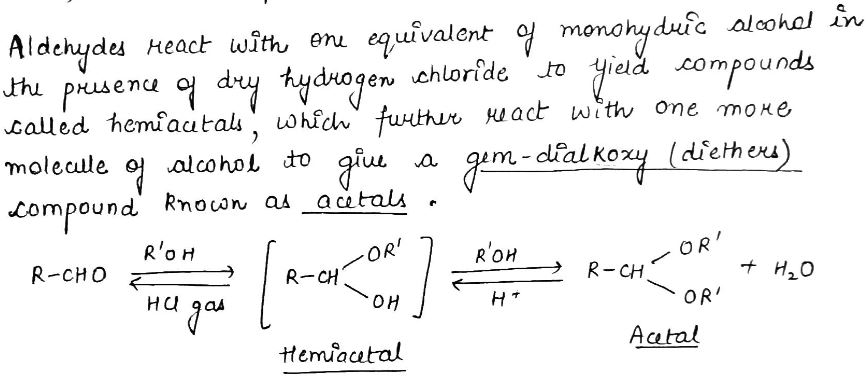 Aldehydes react with one equivalent of monohydric alcohol in
the presence of dry hydrogen chloride to yield compounds
called hemiacetals, which further react with one more
molecule of alcohol to give a gem-dialkoxy (diethers)
compound known as acetals.
R-CHO R'OH HCl gas [ R-CH OR' OH ] R'OH H+ R-CH OR' OR' + H2O
Hemiacetal Acetal